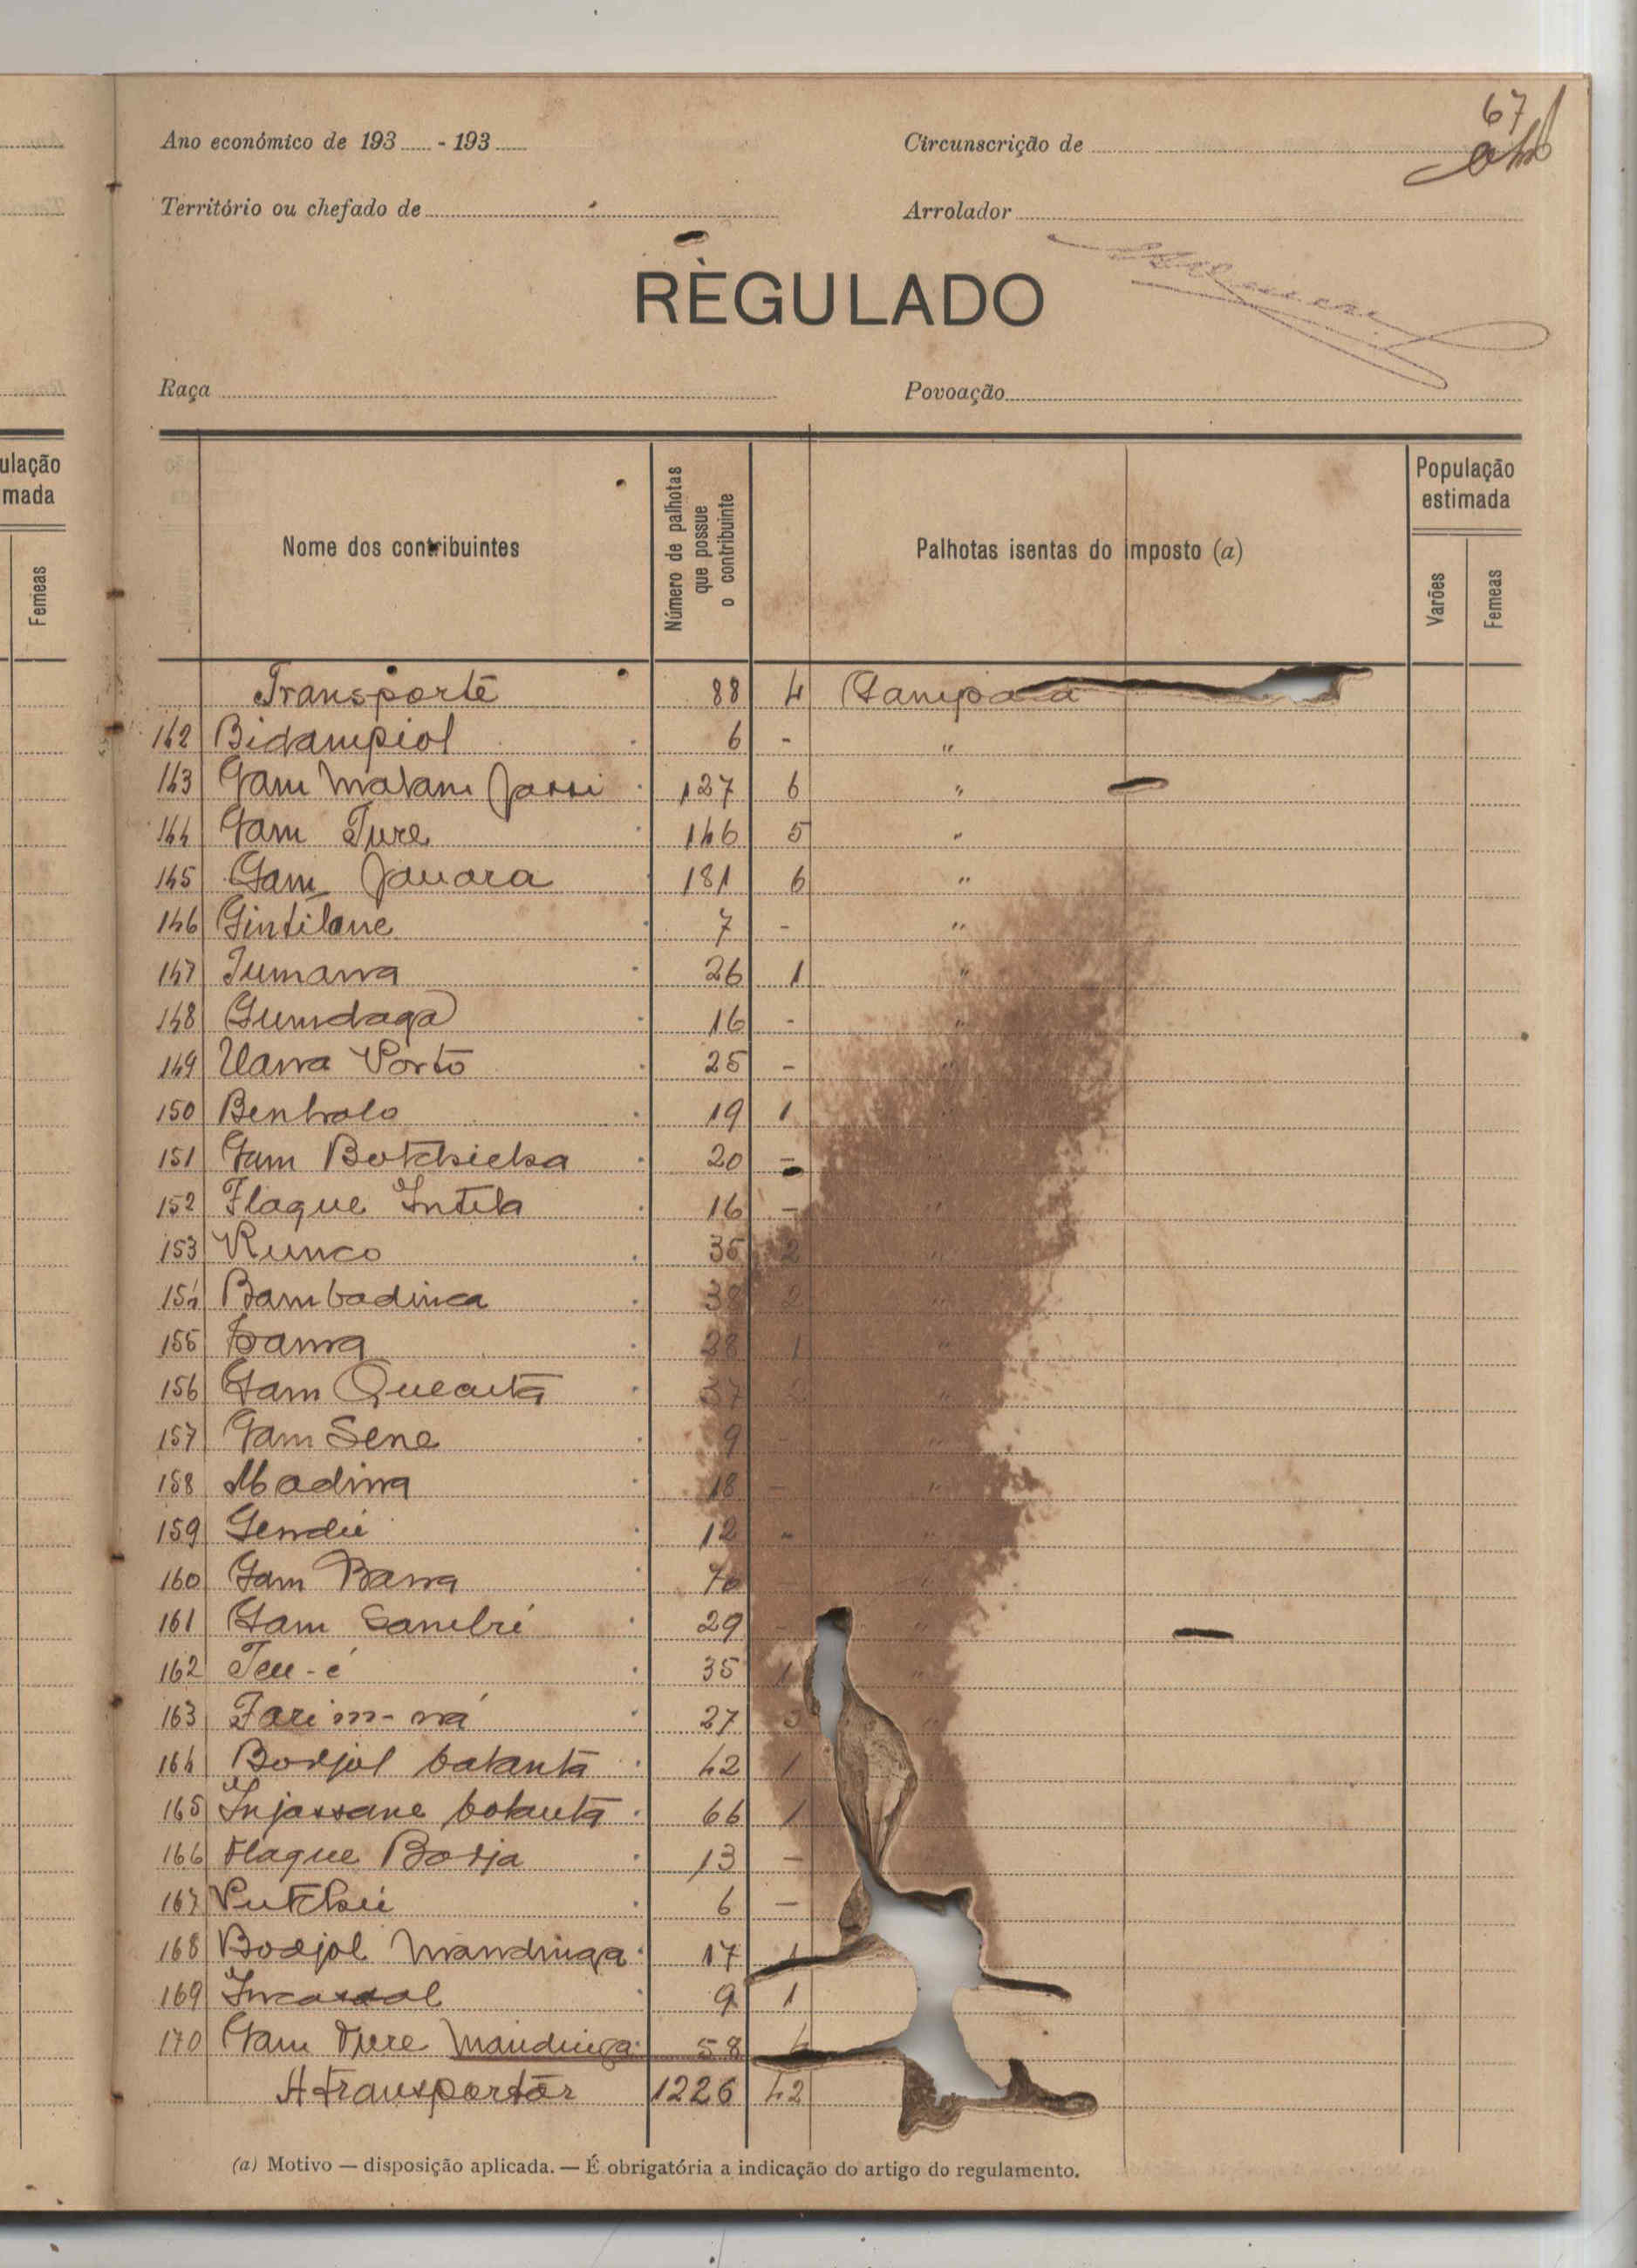 67
Ano económico de 193 - 193
Circunscrição de
Território ou chefado de
Arrolador
REGULADO
Raça
Povoação
ulação
mada
Femeas
Nome dos contribuintes
Número de palhotas que possue o contribuinte
Palhotas isentas do imposto (a)
População estimada
Varões
Femeas
Transporte 88 4 Gampara
142 Bidampiol 6 - "
143 Gam Malam Jassi 127 6 "
144 Gam Ture 146 5 "
145 Gam Jauara 181 6 "
146 Gintilane 7 - "
147 Iumana 26 1 "
148 Gumdaga 16 - "
149 Uana Porto 25 - "
150 Benholo 19 1
151 Gam Botchicha 20 -
152 Flaque Intela 16 - "
153 Runco 35 2 "
154 Bambadinca 38 2 "
155 38 1 "
156 Gam Queauta 37 2 "
157 Gam Sene 9 - "
158 Madina 18 - "
159 Gendu 12 - "
160 Gam Bana 70 - "
161 Gam Sambu 29 - "
162 Teu-é 35 1 "
163 Farim-ná 27 3 "
164 Bodjol balanta 42 1
165 Injassane balanta 66 1
166 Flaque Bodja 13 -
167 Putchu 6 -
168 Bodjol Mandinga 17 1
169 Incassol 9 1
170 Gam Ture Mandinga 58
A transportar 1226 42
(a) Motivo — disposição aplicada. — É obrigatória a indicação do artigo do regulamento.